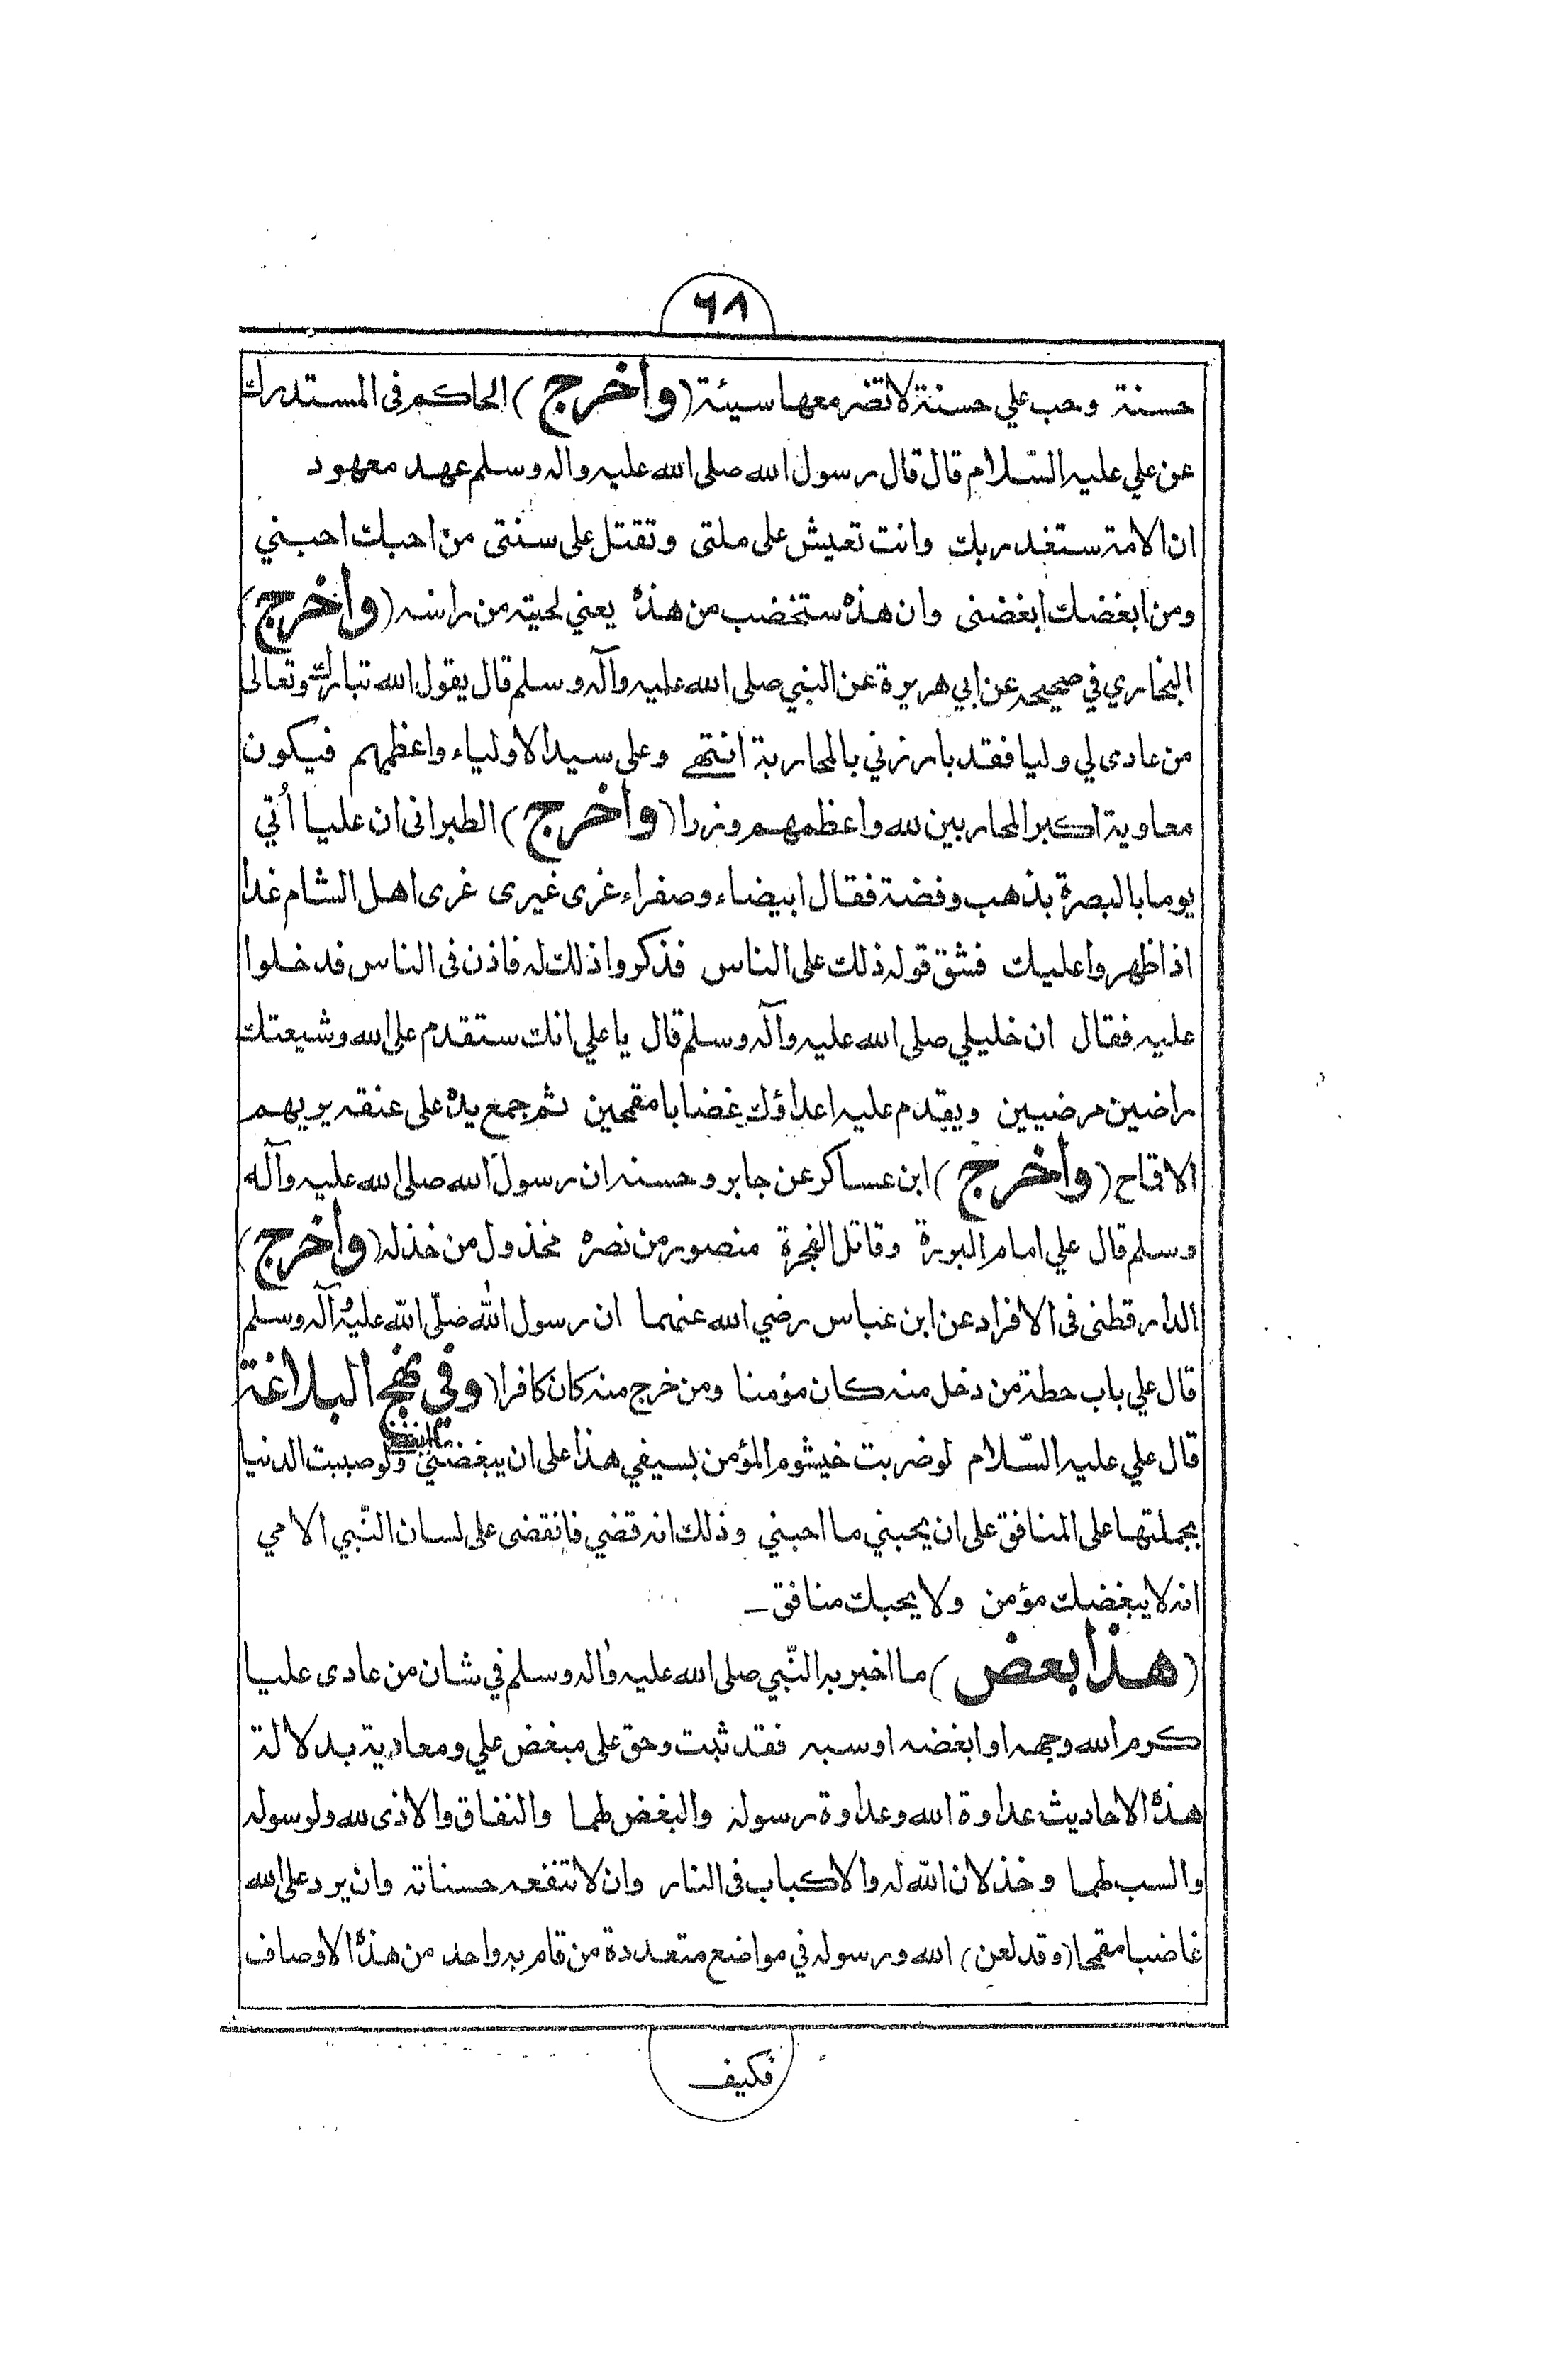 ٦٨
حسنة وحب علي حسنة لا تضر معها سيئة (وأخرج) الحاكم فى المستدرك
عن علي عليه السّلام قال قال رسول الله صلى الله عليه واله وسلم عهد معهود
ان الامة ستغدر بك وانت تعيش على ملتى وتقتل على سنتى من احبك احبني
ومن ابغضك ابغضنى وان هذه ستخضب من هذه يعني لحيته من راسه (وأخرج)
البخاري في صحيحه عن ابي هريرة عن النبي صلى الله عليه وآله وسلم قال يقول الله تبارك وتعالى
من عادى لي وليا فقد بارزني بالمحاربة انتهى وعلي سيد الاولياء واعظمهم فيكون
معاوية اكبر المحاربين لله واعظمهم وزرا (وأخرج) الطبرانى ان عليا أُتي
يوما بالبصرة بذهب وفضة فقال ابيضاء وصفراء غرى غيرى غرى اهل الشام غدا
اذا ظهروا عليك فشق قوله ذلك على الناس فذكروا ذلك له فاذن فى الناس فدخلوا
عليه فقال ان خليلي صلى الله عليه وآله وسلم قال يا علي انك ستقدم على الله وشيعتك
راضين مرضيين ويقدم عليه اعداؤك غضابا مقمحين ثم جمع يده على عنقه يريهم
الاقماح (وأخرج) ابن عساكر عن جابر وحسنه ان رسول الله صلى الله عليه وآله
وسلم قال علي امام البررة وقاتل الفجرة منصور من نصره مخذول من خذله (وأخرج)
الدارقطنى فى الافراد عن ابن عباس رضي الله عنهما ان رسول الله صلّى الله عليه وآله وسلم
قال علي باب حطة من دخل منه كان مؤمنا ومن خرج منه كان كافرا (وفي نهج البلاغة
قال علي عليه السّلام لو ضربت خيشوم المؤمن بسيفي هذا على ان يبغضني ما ابغضني ولو صببت الدنيا
بجملتها على المنافق على ان يحبني ما احبني وذلك انه قضي فانقضى على لسان النّبي الامي
انه لا يبغضك مؤمن ولا يحبك منافق ـ
(هذا بعض) ما اخبر به النّبي صلى الله عليه واله وسلم في شان من عادى عليا
كرم الله وجهه او ابغضه او سبه فقد ثبت وحق على مبغض علي ومعاديه بدلالة
هذه الاحاديث عداوة الله وعداوة رسوله والبغض لهما والنفاق والاذى لله ولرسوله
والسب لهما وخذلان الله له والاكباب فى النار وان لا تنفعه حسناته وان يرد على الله
غاضبا مقمحا (وقد لعن) الله ورسوله في مواضع متعددة من قام به واحد من هذه الاوصاف
فكيف